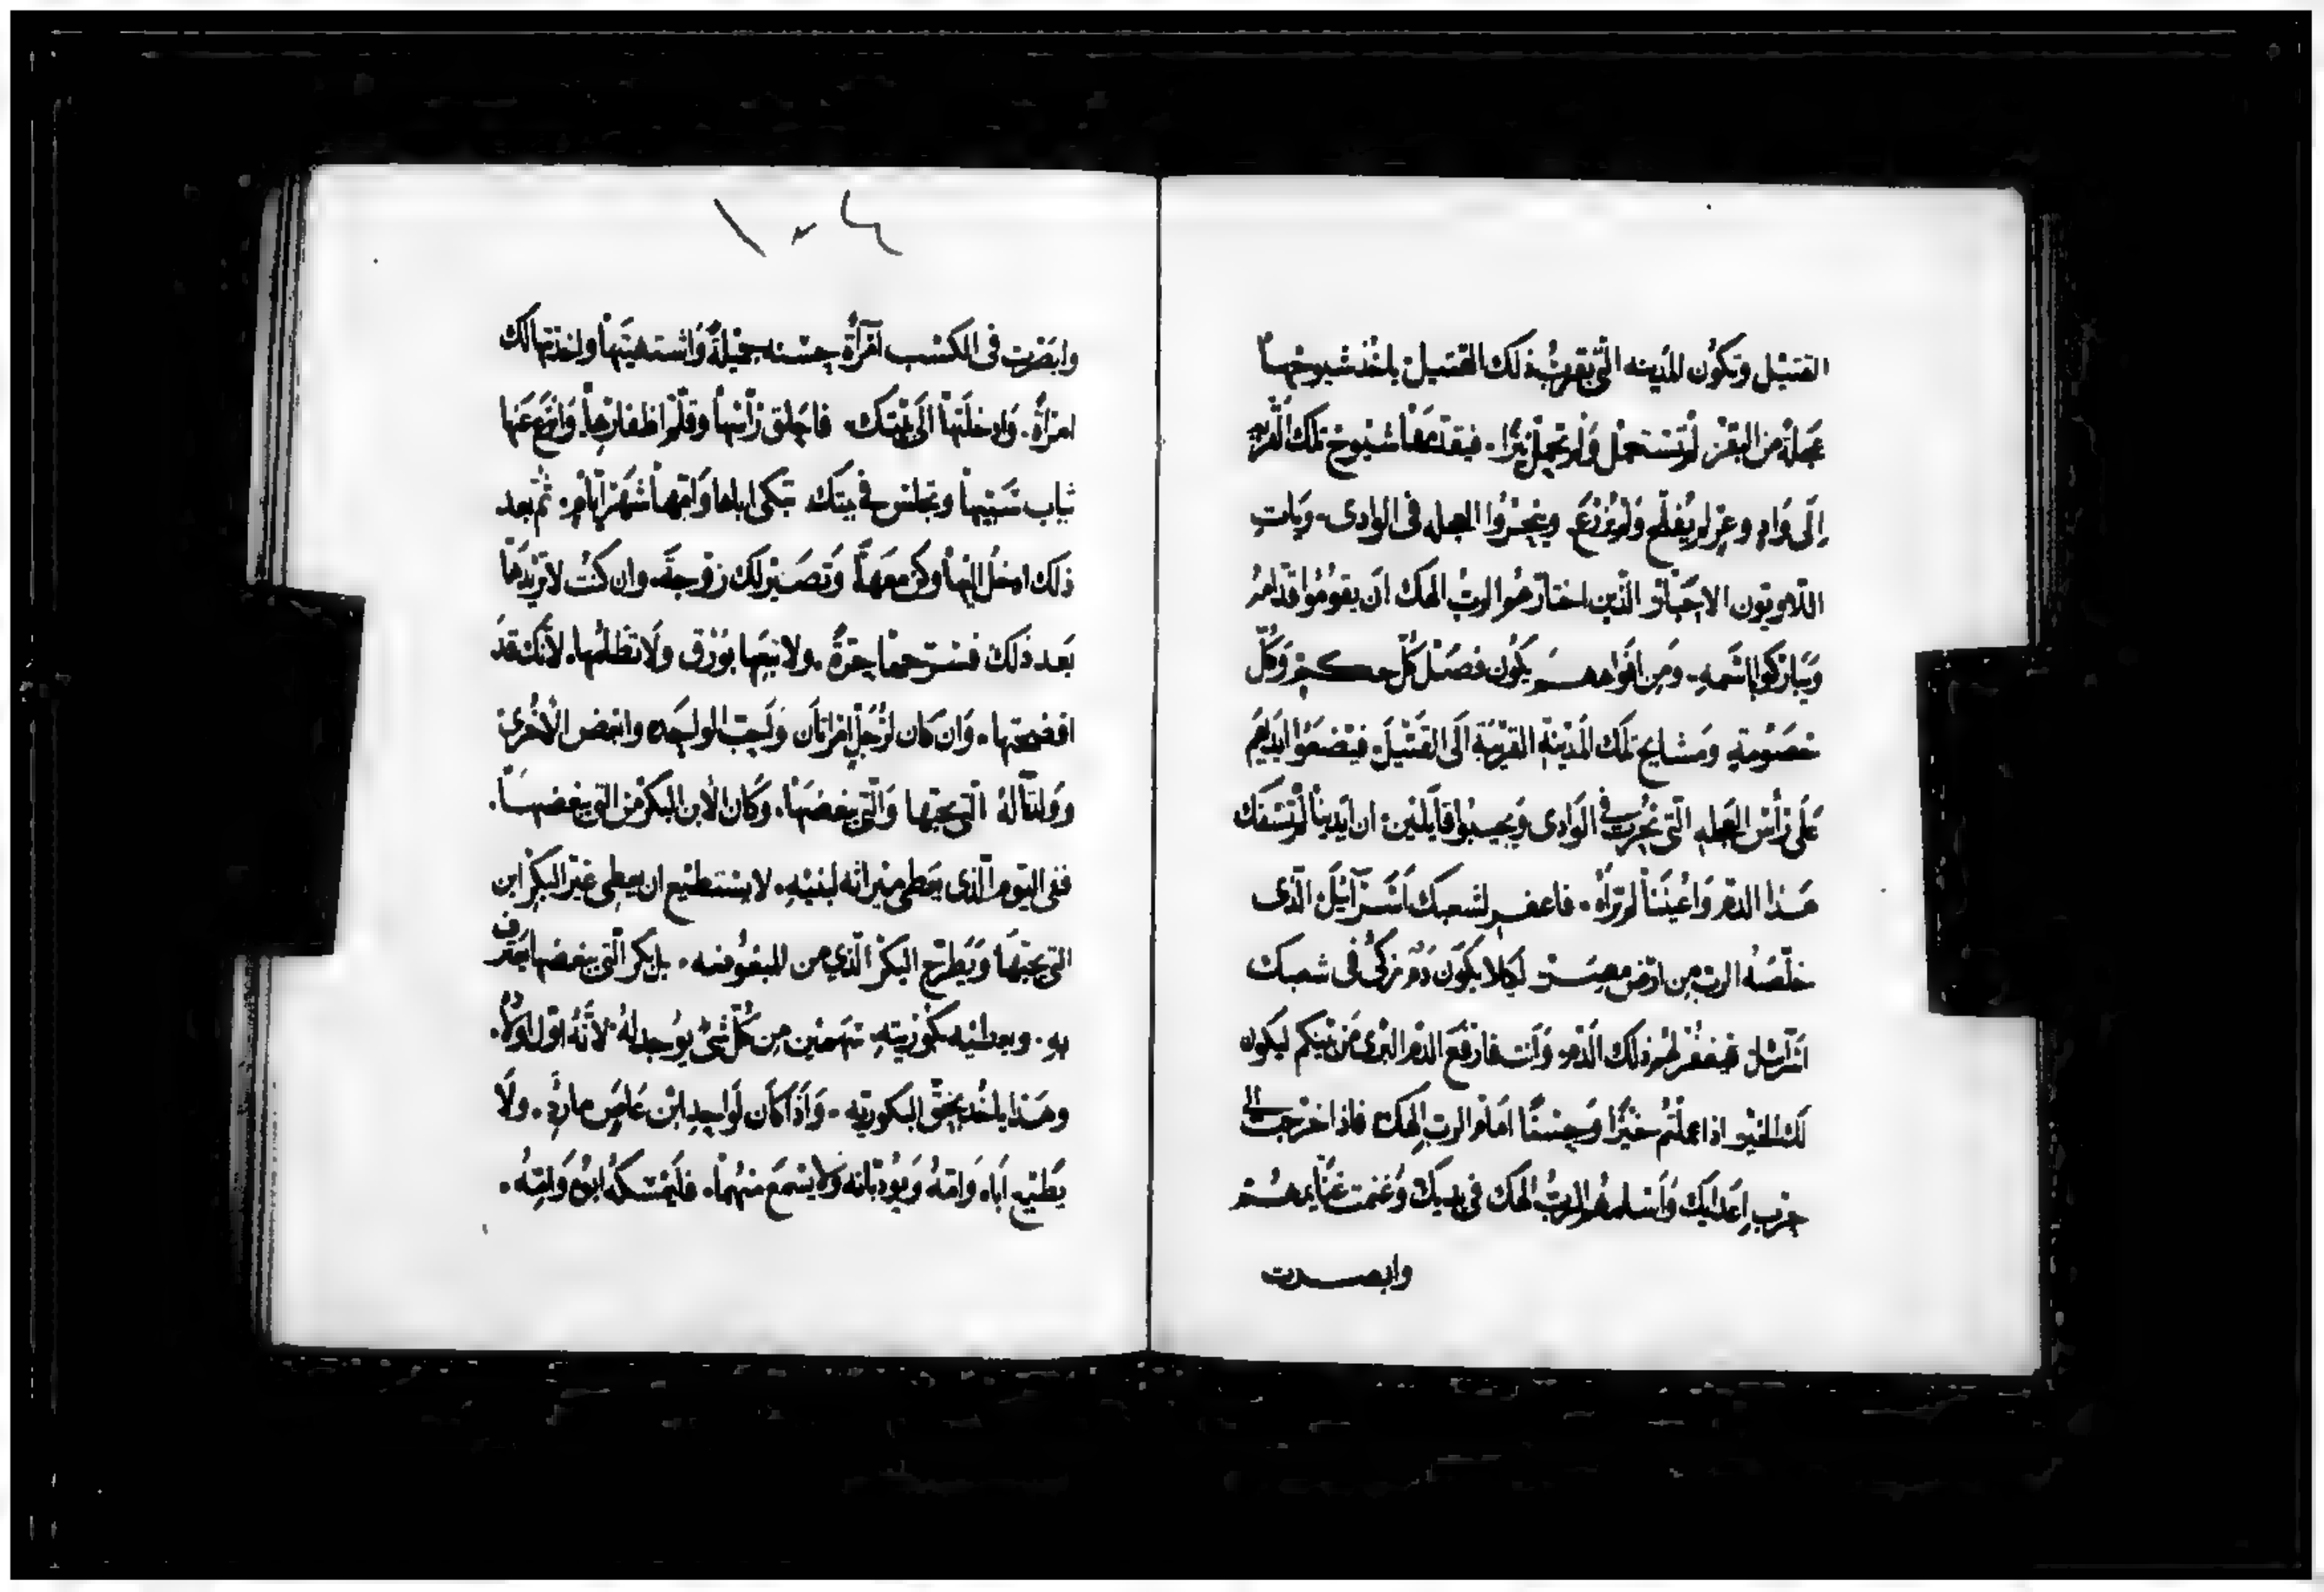 القتيل وتكون المدينه التى بقرب ذلك القتيل ياخذ شيوخها
عجلة من البقر لم تستعمل ولم تحمل نيرا. فيقدمها شيوخ تلك القريه
إلى واد وعر لم يفلح ولم يزرع وينحروا العجله فى الوادى. ويات
اللاويون الاحبار الذين اختارهم الرب الهك ان يقوموا قدامه
ويباركوا باسمه. ومن افواههم يكون فصل كل حكم وكل
خصومة ومشايخ تلك المدينة القريبة الى القتيل. فيضعوا ايديهم
على رأس العجله التى نحرت فى الوادى ويجيبوا قايلين: ان ايدينا لم تسفك
هذا الدم واعيننا لم تراه. فاغفر لشعبك اسرآئيل الذى
خلّصه الرب من ارض مصر لكيلا يكون دم زكى فى شعبك
اسرآئيل فيغفر لهم ذلك الدم وانت فارفع الدم البرى من بينكم ليكون
لك الخير اذا عملتم خيرا وحسنا امام الرب الهك فاذا اخرجت الى
حرب اعدايك واسلمهم الرب الهك فى يديك وغنمت غنايمهم
وابصرت
١٠٤
وابصرت فى الكسب امرأة حسنه جميلة واشتهيتها واخذتها لك
امرأة. وادخلتها الى بيتك. فاحلق رأسها وقلم اظفارها وانزع عنها
ثياب سبيها وتجلس فى بيتك تبكى اباها وامها شهر ايام. ثم بعد
ذلك ادخل اليها وكن معها وتصير لك زوجة. وان كنت لا تريدها
بعد ذلك فسرحها حرة. ولا تبيعها بورق ولا تظلمها. لأنك قد
افضحتها. وان كان لرجل امراتان ولحب الواحده وابغض الاخرى
وولدتا له التى يحبها والتى يبغضها. وكان الابن البكر من التى يبغضها.
ففى اليوم الذى يعطى ميراثه لبنيه. لا يستطيع ان يعطى غير البكر ابن
التى يحبها ويطرح البكر الذي من المبغوضه. بل بكر التى يبغضها يعترف
به. ويعطيه بكوريته سهمين من كل شئ يوجد له لأنه اول اولاده.
وهذا ياخذ بحق البكوريه. واذا كان لواحد ابن عاص مارد. ولا
يطيع اباه وامه ويؤدبانه ولا يسمع منهما. فليمسكه ابوه وامه.